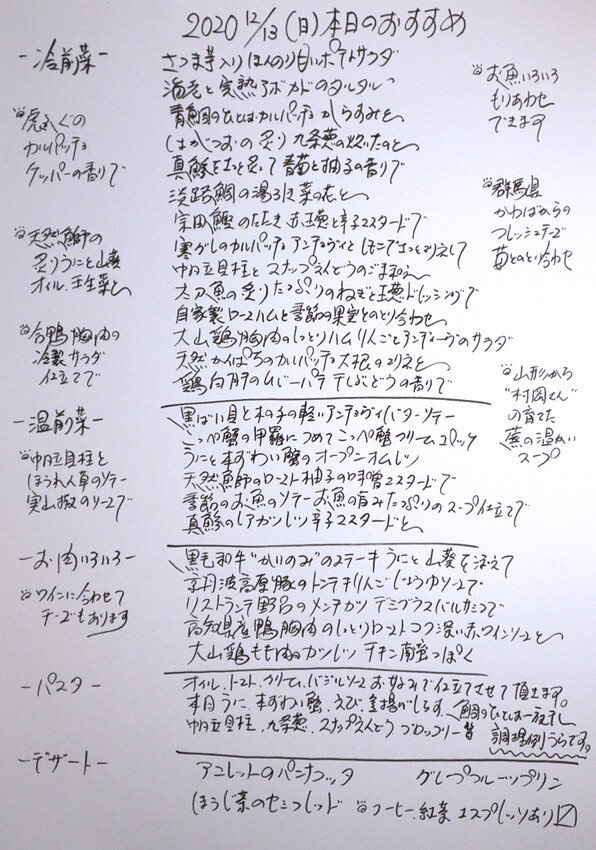 2020 12/13 (日) 本日のおすすめ
-冷前菜-
さつま芋入りほんのり甘いポテトサラダ
海老と完熟アボカドのタルタル
青鯛のひとはカルパッチョ からすみと
はがつおの炙り 九条葱の炊いたのと
真鯵をさっと炙って 春菊と柚子の香りで
淡路鯛の湯引き 菜の花と
宗田鰹のたたき 赤玉葱と辛子マスタードで
寒ぶりのカルパッチョ アンチョヴィとレモンでさっとマリネして
帆立貝柱とスナップえんどうのごまねえ
太刀魚の炙り たっぷりのねぎと玉葱ドレッシングで
自家製ロースハムと季節の果実とのとり合わせ
大山鶏胸肉のしっとりハム りんごとアンディーヴのサラダ
天然かんぱちのカルパッチョ 大根のマリネと
鶏白肝のムースパテ 干しぶどうの香りで
虎ふぐの
カルパッチョ
ケッパーの香りで
天然鰤の
炙り うにと山葵
オイル、壬生菜と
合鴨胸肉の
冷製サラダ
仕立てで
お魚いろいろ
もりあわせ
できます
群馬県
かわばからの
フレッシュチーズ
苺とのとり合わせ
-温前菜-
黒ばい貝と木の子の軽いアンチョヴィバターソテー
こっぺ蟹の甲羅につめてこっぺ蟹クリームコロッケ
うにと本ずわい蟹のオープンオムレツ
天然鰤のロースト 柚子の味噌マスタードで
季節のお魚のソテー お魚の旨みたっぷりのスープ仕立てで
真鯵のレアカツレツ 辛子マスタードと
帆立貝柱と
ほうれん草のソテー
実山椒のソースで
山形から
"村岡さん"
の育てた
蕪の温かい
スープ
-お肉いろいろ-
黒毛和牛"かいのみ"のステーキ うにと山葵を添えて
京丹波高原豚のトンテキ りんごじょうゆソースで
リストランテ野呂のメンチカツ デミグラスバルサミコで
高知県産鴨胸肉のしっとりロースト コク深い赤ワインソースと
大山鶏もも肉のカツレツ チキン南蛮っぽく
ワインに合わせて
チーズもあります
-パスタ-
オイル、トマト、クリーム、バジルソース お好みで仕立てさせて頂きます。
本日うに、本ずわい蟹、えび、釜揚げしらす、鯛のひとは一夜干し
帆立貝柱、九条葱、スナップえんどう ブロッコリー 等
調理例うらです。
-デザート-
アニレットのパンナコッタ
グレープフルーツプリン
ほうじ茶のセミフレッド
コーヒー、紅茶 エスプレッソあり